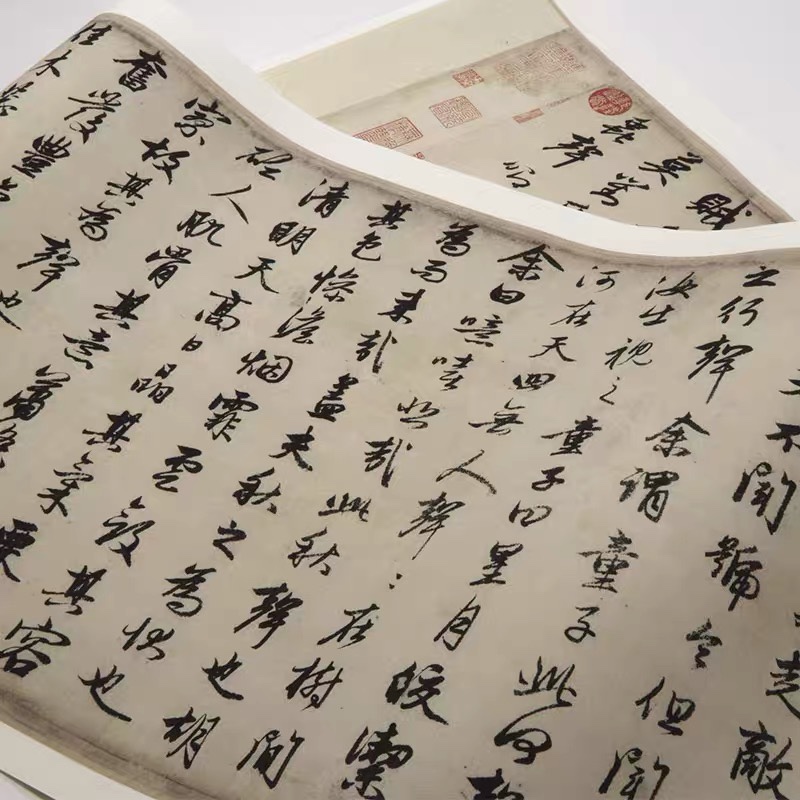 賦
聲
赴敵
不聞號令但聞
之行聲余謂童子此何聲
汝出視之童子曰星月皎潔
河在天四無人聲：在樹間
余曰噫嘻悲哉此秋聲也胡
為而来哉蓋夫秋之為状也
其色慘澹烟霏雲斂其容
清明天高日晶其氣栗
砭人肌骨其意蕭條
寥故其為聲也
奮發豐草
佳木